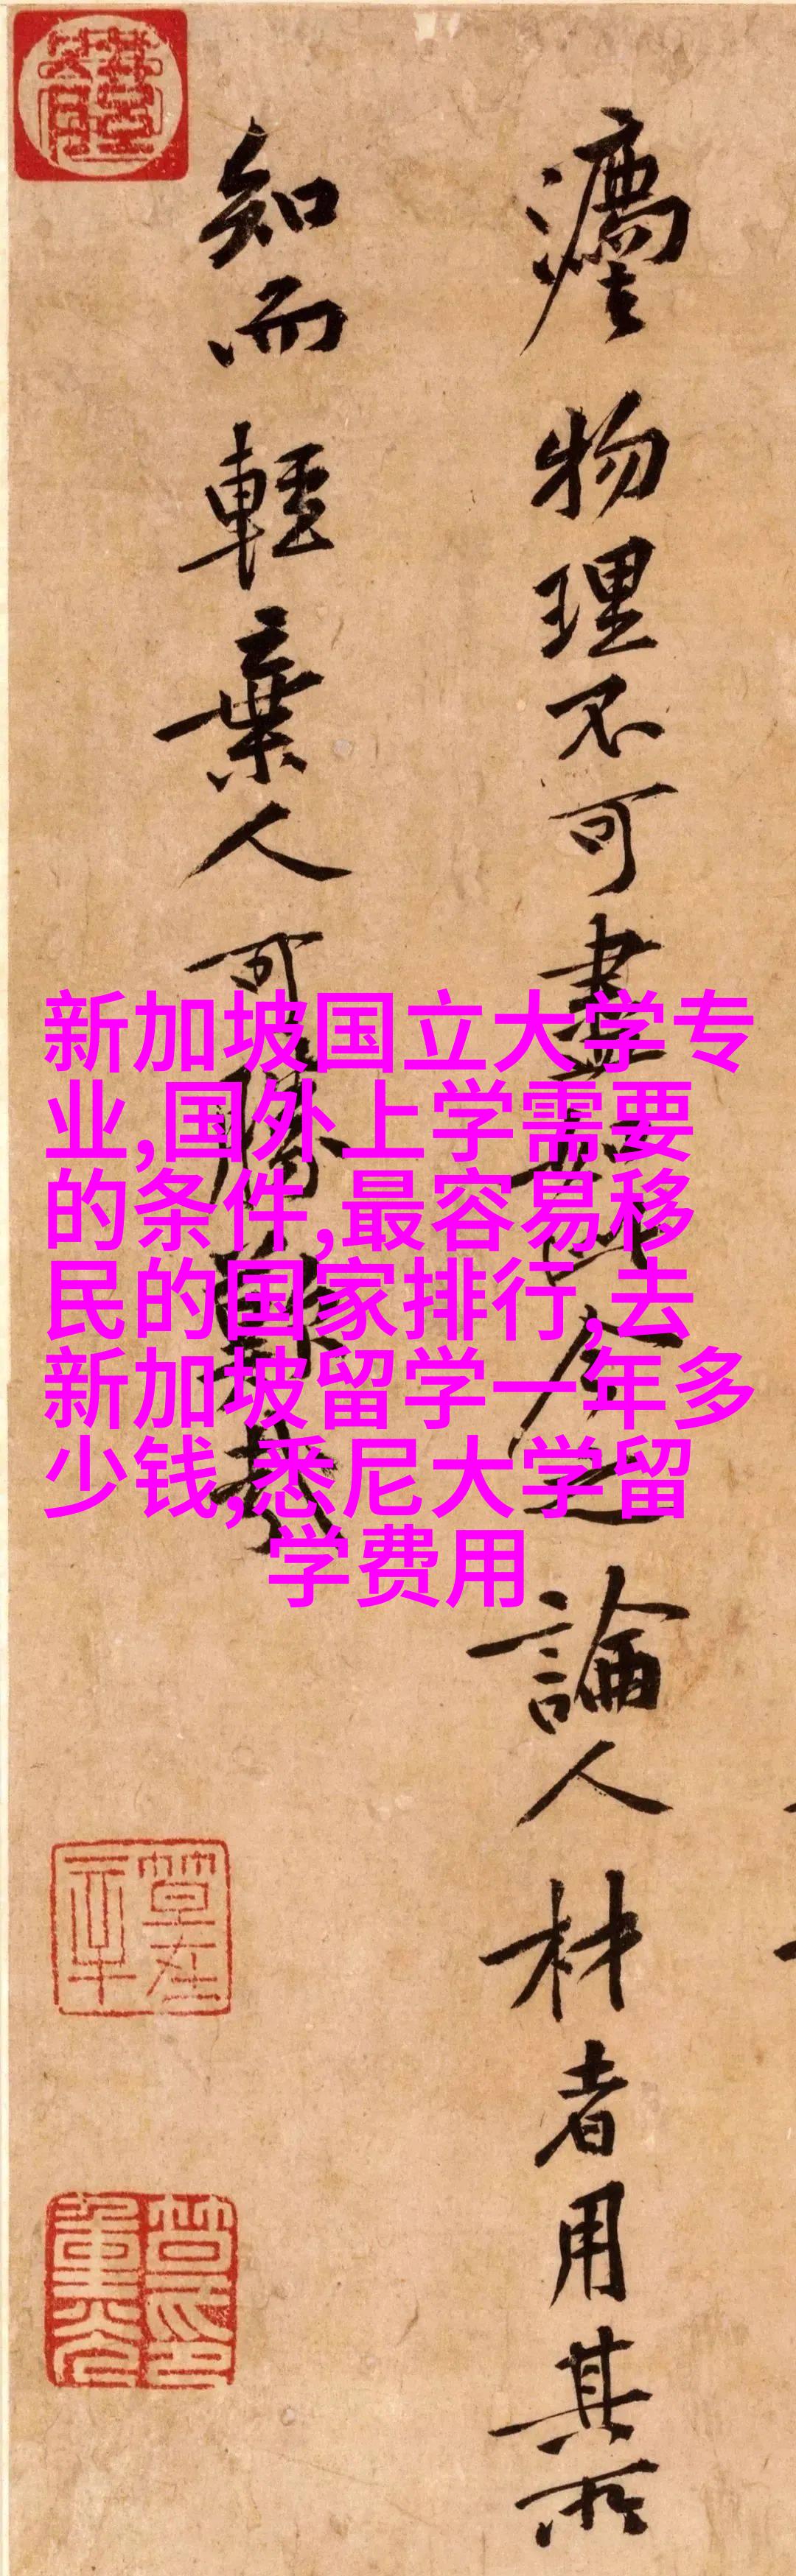 瘧物理不可盡如此今之論人材者用其所
知而輕棄人可勝歎哉
新加坡国立大学专
业,国外上学需要
的条件,最容易移
民的国家排行,去
新加坡留学一年多
少钱,悉尼大学留
学费用